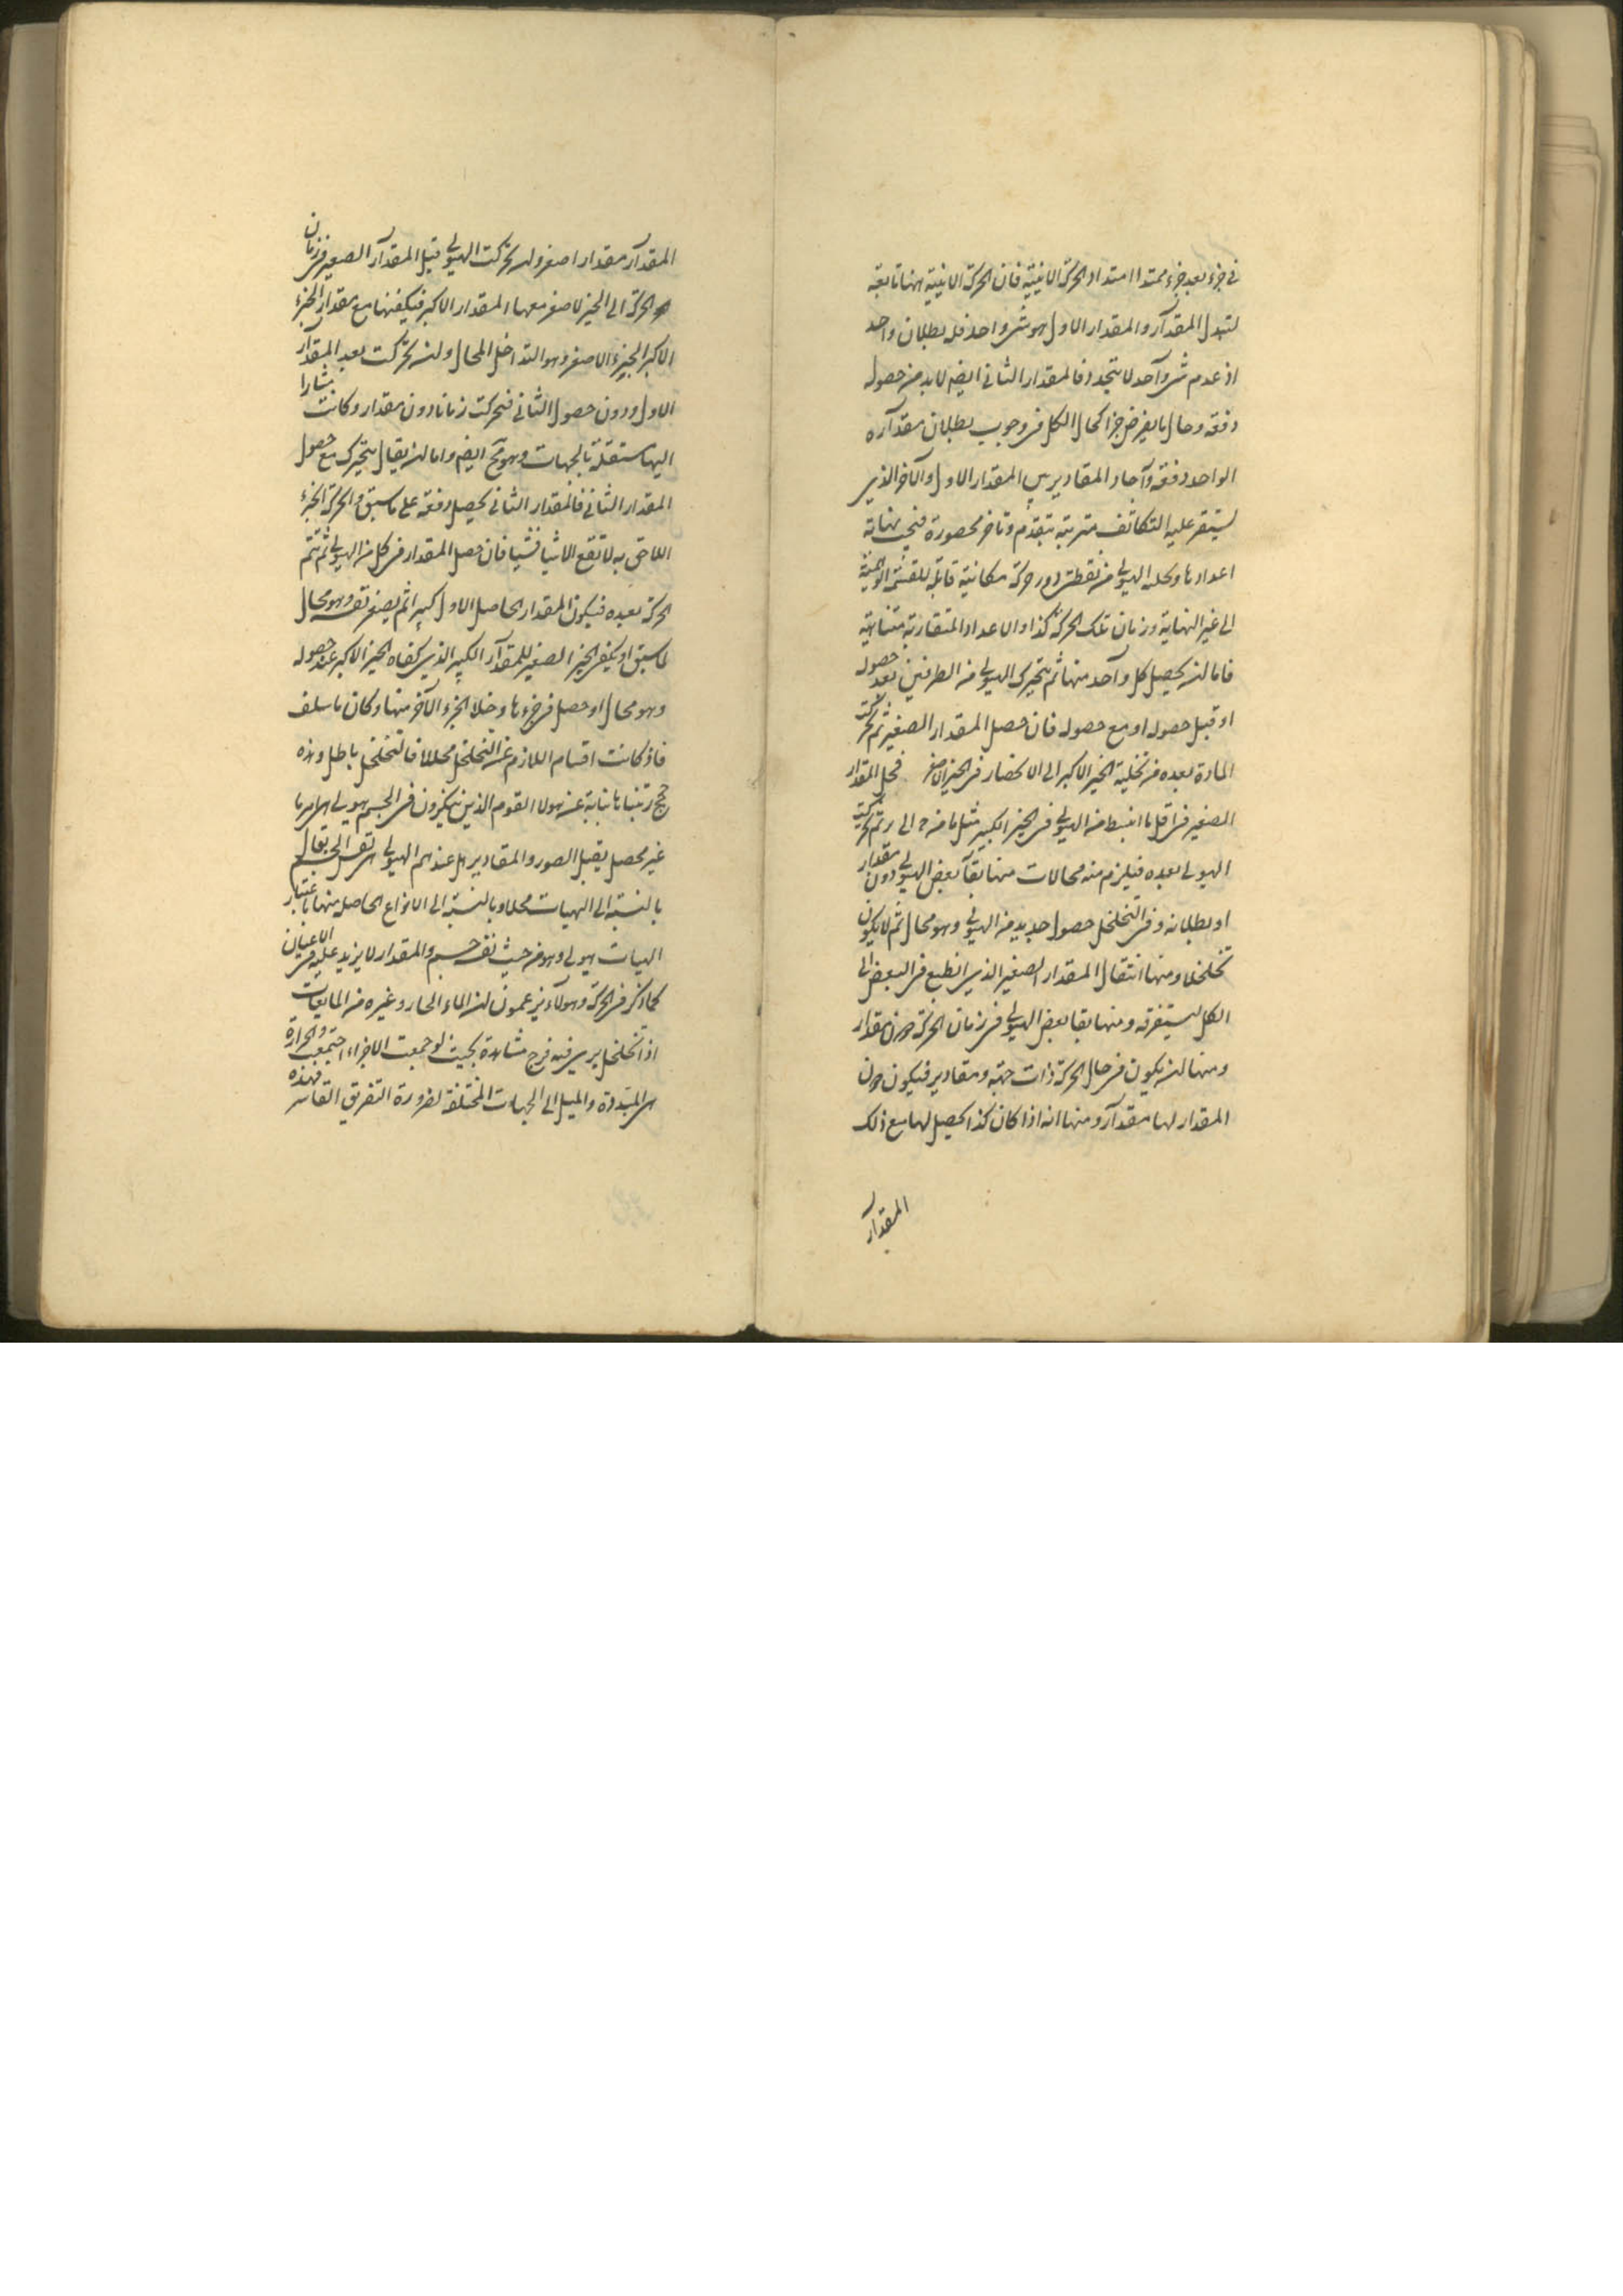 في جزء بعد جزء ممتدا امتداد الحركة الاينية فان الحركة الاينية هنا تابعة
لتبدل المقدار والمقدار الاول هو شئ واحد فله بطلان واحد
اذ عدم شئ واحد لا يتجدد فالمقدار الثاني ايضا لابد من حصوله
دفعة وحال ما يفرض جزا كحال الكل في وجوب بطلان مقداره
الواحد دفعة وآحاد المقادير بين المقدار الاول والآخر الذي
يستقر عليه التكاثف مترتبة بتقدم وتاخر محصورة فيجب نهاية
اعدادها وكله الهيولى من نقطتي حركة مكانية قابلة للقسمة الوهمية
الى غير النهاية وزمان تلك الحركة كذا والاعداد المتقاربة متناهية
فاما ان يحصل كل واحد منها ثم يتحرك الهيولى من الطرفين بعد حصوله
او قبل حصوله او مع حصوله فان حصل المقدار الصغير ثم تحركت
المادة بعده من تخلية الحيز الاكبر الى الانحصار في الحيز الاصغر فحل المقدار
الصغير في اقل ما انبسط من الهيولى في الحيز الكبير مثل ما من الى ثم تحركت
الهيولى بعده فيلزم منه محالات منها بقاء بعض الهيولى دون مقدار
او بطلانه وفي التخلخل حصول جديد من الهيولى وهو محال ثم لا يكون
تخلخلا ومنها انتقال المقدار الصغير الذي انطبع في البعض الى
الكل ليستغرقه ومنها بقا بعض الهيولى في زمان الحركة دون مقدار
ومنها ان يكون في حال الحركة ذات جهة ومقادير فيكون دون
المقدار لها مقدار ومنها انه اذا كان كذا يحصل لها مع ذلك
المقدار
المقدار مقدار اصغر وان تحركت الهيولى قبل المقدار الصغير في زمان
الحركة الى الحيز الاصغر معها المقدار الاكبر فيكفيها مع مقدار الجزء
الاكبر الجزء الاصغر وهو التداخل المحال وان تحركت بعد المقدار
الاول ودون حصول الثاني فتحركت زمانا دون مقدار وكانت مشارا
اليها مستقلة بالجهات وهو مح ايضا واما ان يقال يتحرك مع حصول
المقدار الثاني فالمقدار الثاني يحصل دفعة على ما سبق والحركة الجزء
اللاحق به لا تقع الا شيئا فشيئا فان حصل المقدار في كل من الهيولى ثم تتم
الحركة بعده فيكون المقدار الحاصل الاول كبيرا ثم يصغر نفسه وهو محال
لما سبق او يكفي الحيز الصغير للمقدار الكبير الذي كفاه الحيز الاكبر عند حصوله
وهو محال او حصل في جزءها وخلا الجزء الآخر منها وكان ما سلف
فاذ كانت اقسام اللازم عن التخلخل محالا فالتخلخل باطل وهذه
حجج رتبناها نيابة عن هولا القوم الذين ينكرون في الجسم هيولى هي امر ما
غير محصل يقبل الصور والمقادير بل عندهم الهيولى هي نفس الجسم يقال
بالنسبة الى الهيات محلا وبالنسبة الى الانواع الحاصلة منها باعتبار
الهيات هيولى وهو من حيث نفسه جسم والمقدار لا يزيد عليه في الاعيان
كما ذكر في الحركة وهولاء يزعمون ان الماء الحار وغيره من المايعات
اذا تخلخل يرى فيه فرج مشاهدة بحيث لو جمعت الاجزاء اجتمعت والحرارة
هي المبددة والميل الى الجهات المختلفة لضرورة التفريق القاسر فهذه